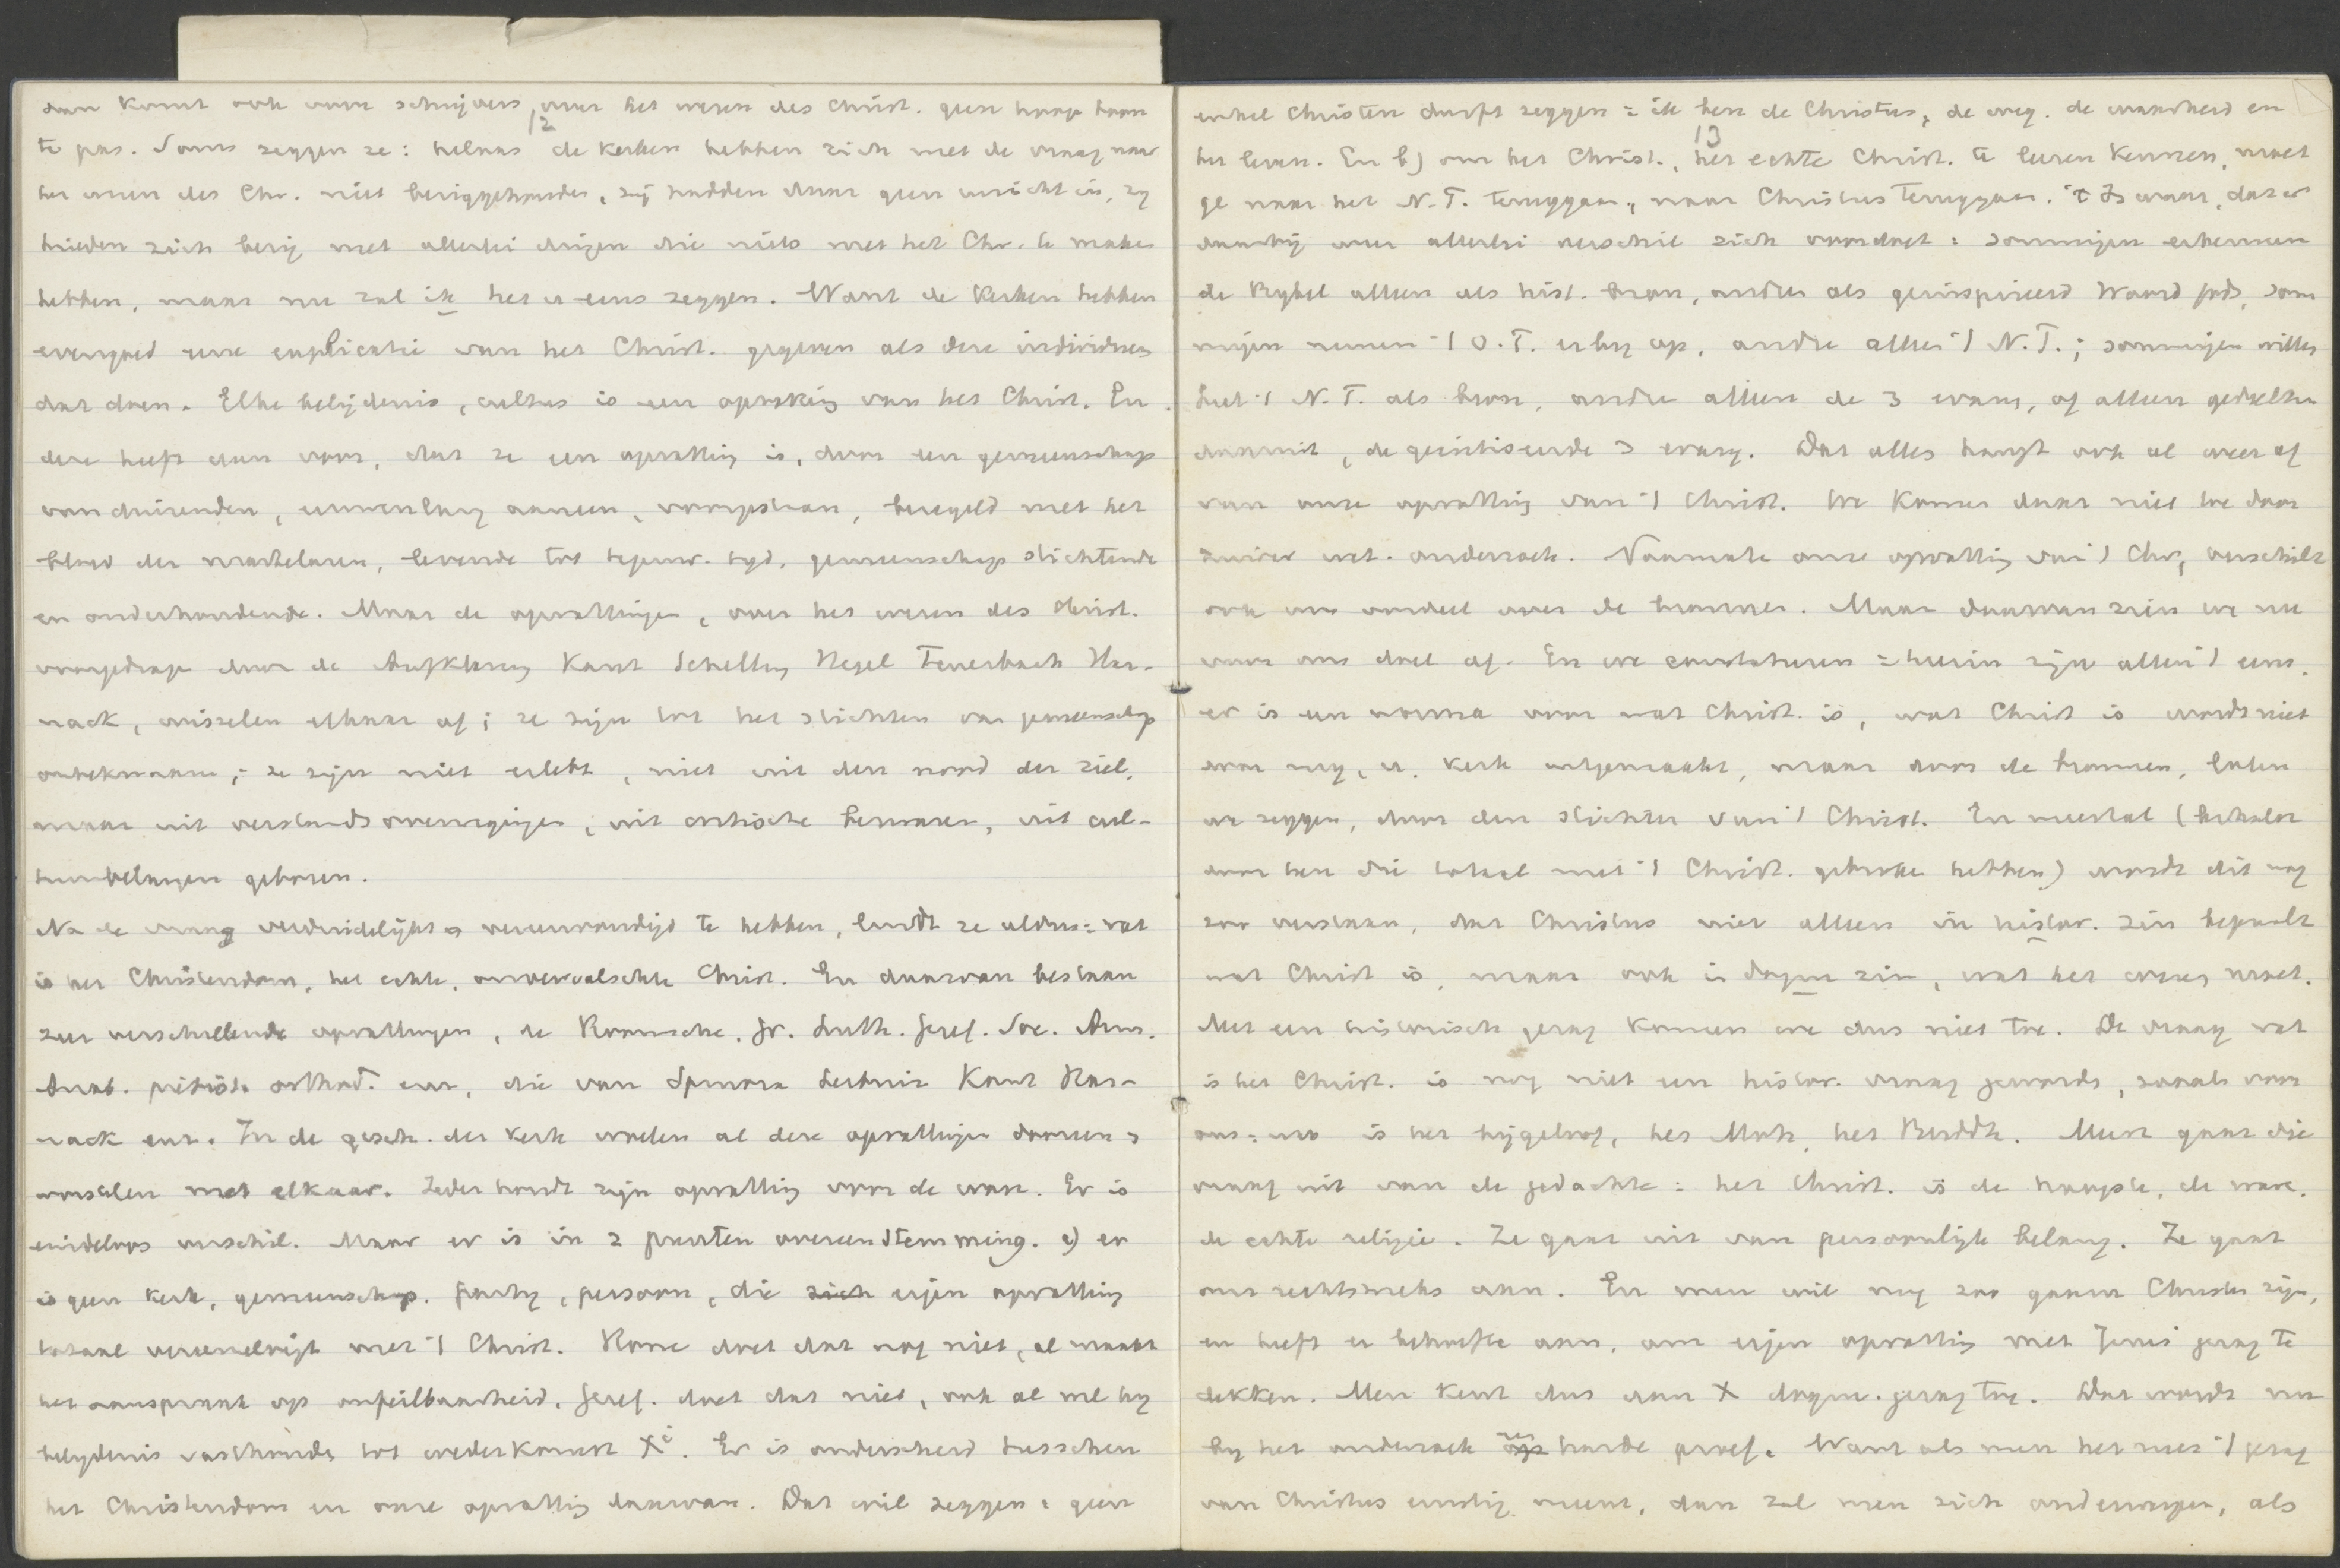 dan komt ook onze schrijvers over het wezen des Christ. geen hooge toon
12
te pas. Soms zeggen ze: helaas de kerken hebben zich met de vraag naar
het wezen des Chr. niet beziggehouden, zij hadden daar geen inzicht in, zij
hielden zich bezig met allerlei dingen die niets met het Chr. te maken
hebben, maar nu zal ik het u eens zeggen. Want de kerken hebben
evengoed eene explicatie van het Christ. gegeven als deze individuen
dat doen. Elke belijdenis, cultus is een opvatting van het Christ. En
deze heeft dan voor, dat ze een opvatting is, door een gemeenschap
van duizenden, eeuwenlang aaneen, voorgestaan, bezegeld met het
bloed der martelaren, levende tot tegenw. tijd, gemeenschap stichtende
en onderhoudende. Maar de opvattingen, over het wezen des Christ.
voorgedragen door de Aufklärung Kant Schelling Hegel Feuerbach Har-
nack, wisselen elkaar af; ze zijn tot het stichten van gemeenschap
onbekwaam; ze zijn niet erlebt, niet uit den nood der ziel,
maar uit verstandsoverwegingen, uit critische bezwaren, uit cul-
tuurbelangen geboren.
Na de vraag verduidelijkt en vereenvoudigd te hebben, luidt ze aldus: wat
is het Christendom, het echte, onvervalschte Christ. En daarvan bestaan
zeer verschillende opvattingen, de Roomsche, Gr. Luth. Geref. Soc. Arm.
Anab. pietist. orthod. enz, die van Spinoza Leibniz Kant Har-
nack enz. In de gesch. der kerk woelen al deze opvattingen dooreen en
worstelen met elkaar. Ieder houdt zijn opvatting voor de ware. Er is
eindeloos verschil. Maar er is in 2 punten overeenstemming. a) er
is geen kerk, gemeenschap, partij, persoon, die zich eigen opvatting
totaal vereenzelvigt met 't Christ. Rome doet dat nog niet, al maakt
het aanspraak op onfeilbaarheid, Geref. doet dat niet, ook al wil hij
belijdenis vasthouden tot wederkomst Xi. Er is onderscheid tusschen
het Christendom en onze opvatting daarvan. Dat wil zeggen: geen
enkel Christen durft zeggen: ik ben de Christus, de weg, de waarheid en
13
het leven. En b) om het Christ., het echte Christ. te leeren kennen, moet
ge naar het N.T. teruggaan, naar Christus teruggaan. 't Is waar, dat er
daarbij weer allerlei verschil zich voordoet: sommigen erkennen
de Bijbel alleen als hist. bron, andere als geinspireerd Woord Gods, som
migen nemen 't O.T. erbij op, andre alleen 't N.T.; sommigen willen
heel 't N.T. als bron, andre alleen de 3 evang, of alleen gedeelten
daaruit, de gecritiseerde 3 evang. Dat alles hangt ook al weer af
van onze opvatting van 't Christ. We komen daar niet toe door
zuiver wet. onderzoek. Naarmate onze opvatting van 't Chr, verschilt
ook ons oordeel over de bronnen. Maar daarvan zien we nu
voor ons doel af. En we constateeren: hierin zijn allen 't eens,
er is een norma voor wat Christ. is, wat Christ is wordt niet
door mij, u, kerk uitgemaakt, maar door de bronnen, laten
we zeggen, door den stichter van 't Christ. En meestal (behalve
door hen die totaal met 't Christ. gebroken hebben) wordt dit nog
zoo verstaan, dat Christus niet alleen in histor. zin bepaalt
wat Christ is, maar ook in dogm zin, wat het wezen moet.
Met een historisch gezag komen we dus niet toe. De vraag wat
is het Christ. is nog niet een histor. vraag geworden, zooals voor
ons: wat is het bijgeloof, het Moh, het Buddh. Men gaat die
vraag uit van de gedachte: het Christ. is de hoogste, de ware,
de echte religie. Ze gaat uit van persoonlijk belang. Ze gaat
ons rechtstreeks aan. En men wil nog zoo gaarne Christen zijn,
en heeft er behoefte aan, om eigen opvatting met Jezus' gezag te
dekken. Men kent dus aan X dogm. gezag toe. Dat wordt nu
bij het onderzoek een harde proef. Want als men het met 't gezag
van Christus ernstig meent, dan zal men zich onderwerpen, als